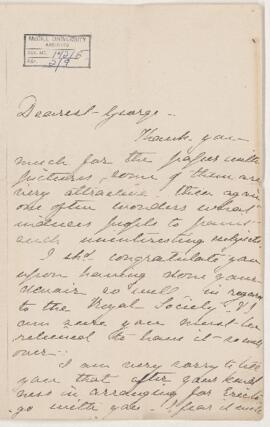 McGILL UNIVERSITY
ARCHIVES
ACC. NO.
REF.
Dearest George -
Thank you
much for the paper with
pictures, some of them are
very attractive then again
one often wonders what
induces people to paint
such uninteresting subjects
I shd. congratulate you
upon having done your
so well in regard
to the Royal Society. I
am sure you must be
relieved to have it so well
over -
I am very sorry to tell
you that after your kind-
ness in arranging for Eric to
go with you I fear it